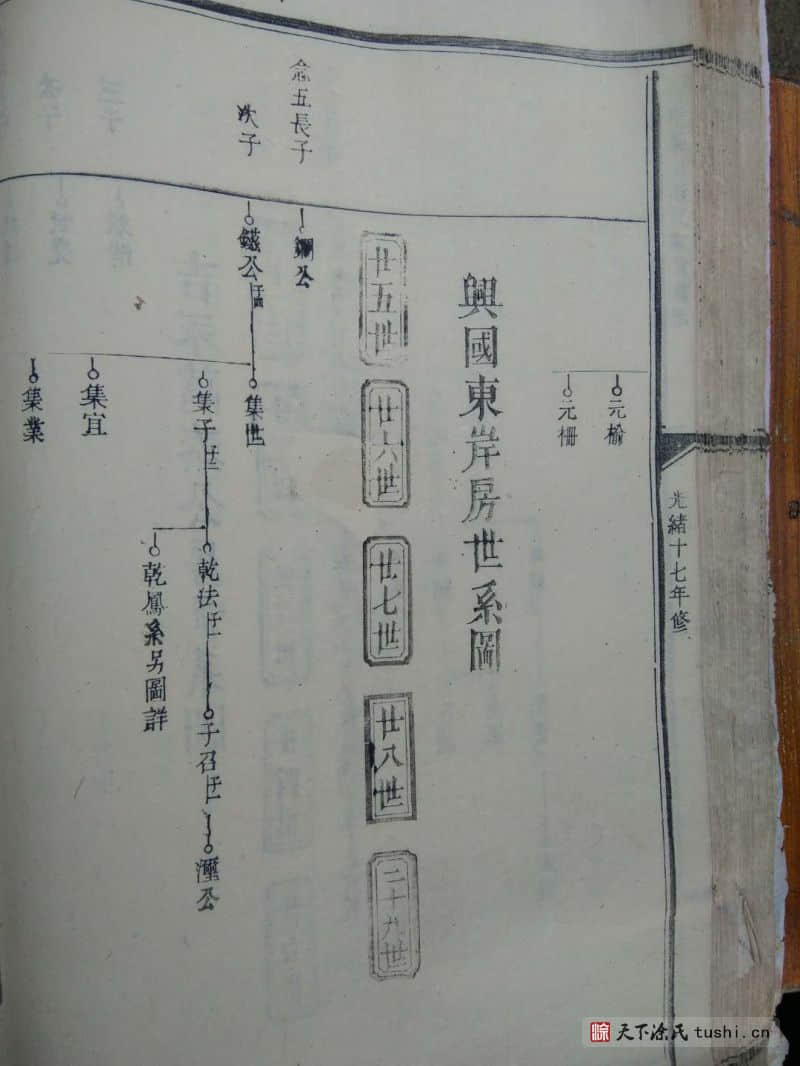 光緒十七年修
元榆
元柵
興國東岸房世系圖
廿五世
廿六世
廿七世
廿八世
二十九世
念五長子
鋼公
次子
鐵公
集世
集子
乾法
子召
湮公
乾鳳系另圖詳
集宜
集業
涂 天下涂氏 tushi.cn